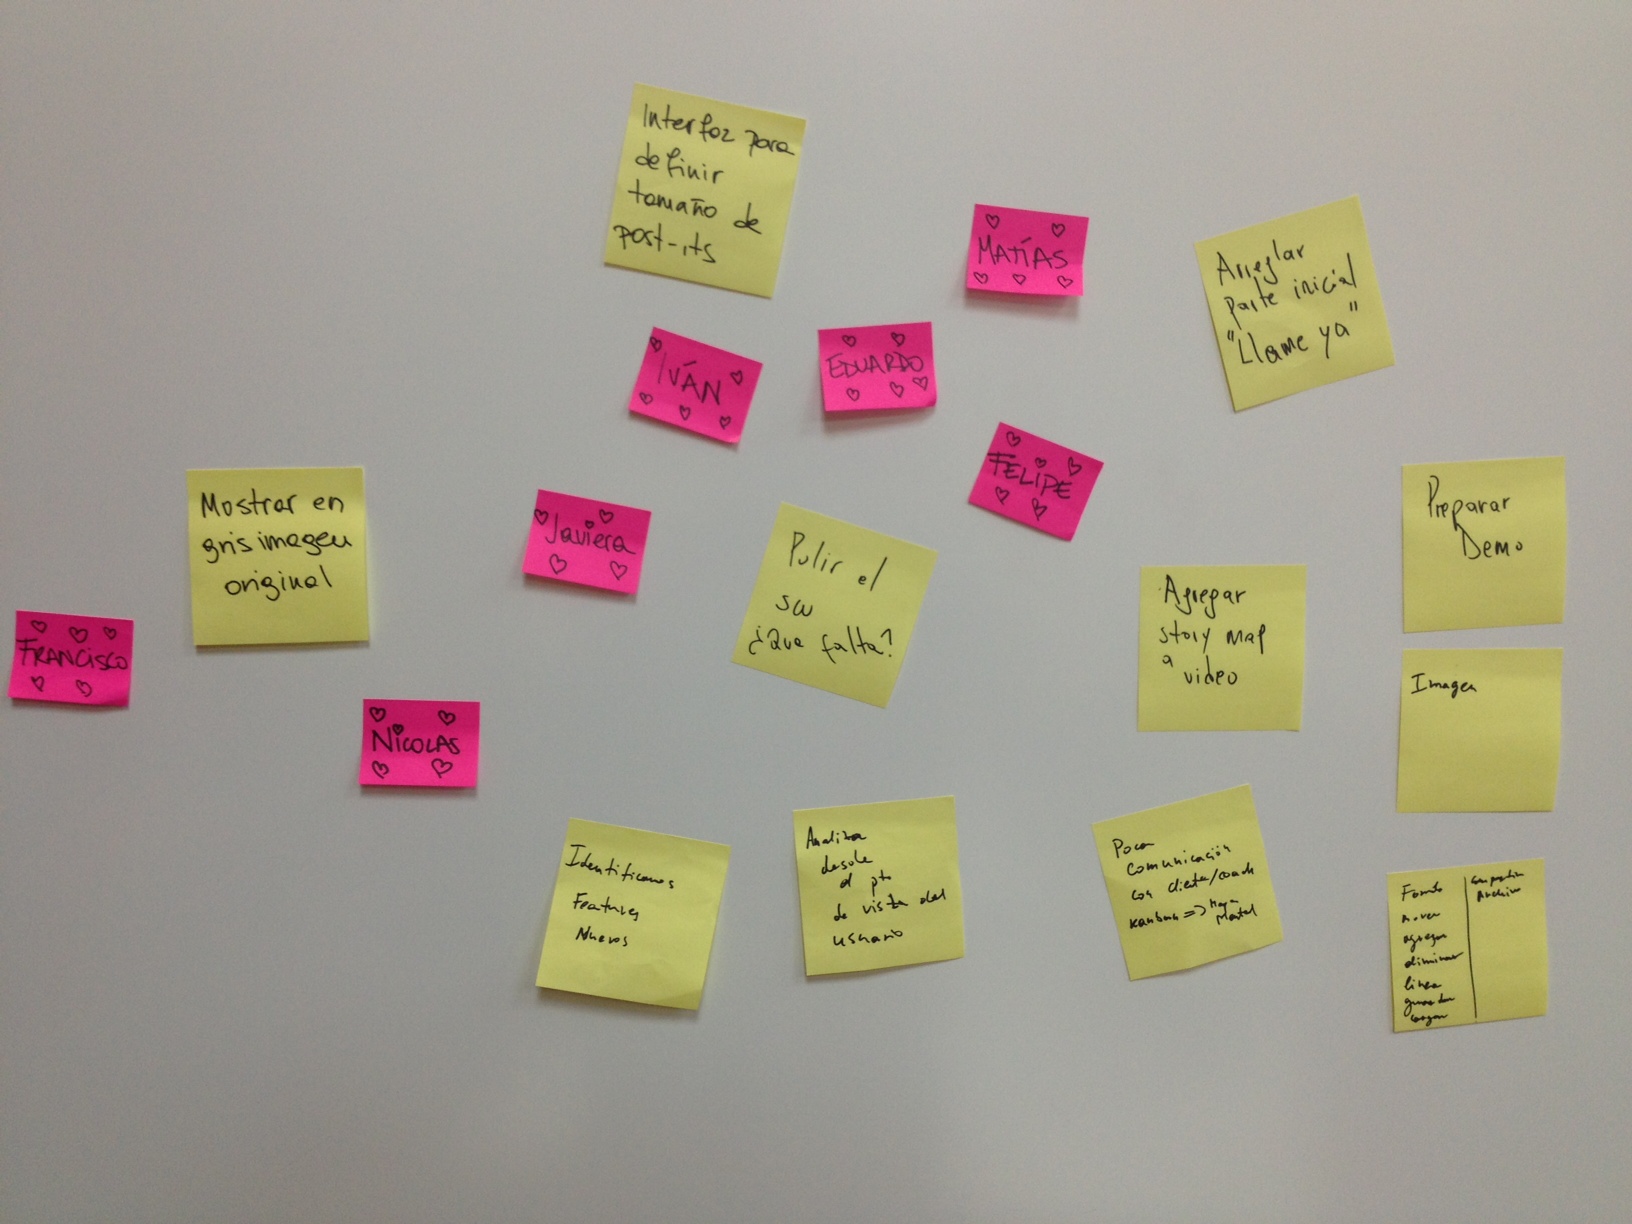 Interfaz para
definir
tamaño de
post-its
MATÍAS
Arreglar
parte inicial
"Llame ya"
IVÁN
EDUARDO
FELIPE
Mostrar en
gris imagen
original
Javiera
Pulir el
sw
¿Que falta?
Preparar
Demo
Agregar
story map
a
video
FRANCISCO
NICOLAS
Imagen
Identificamos
Features
Nuevos
Analizar
desde
el pto
de vista del
usuario
Poca
comunicación
con cliente/coach
kanban =>
mover
agregar
eliminar
linea
guardar
cargar
compartir
Archivo